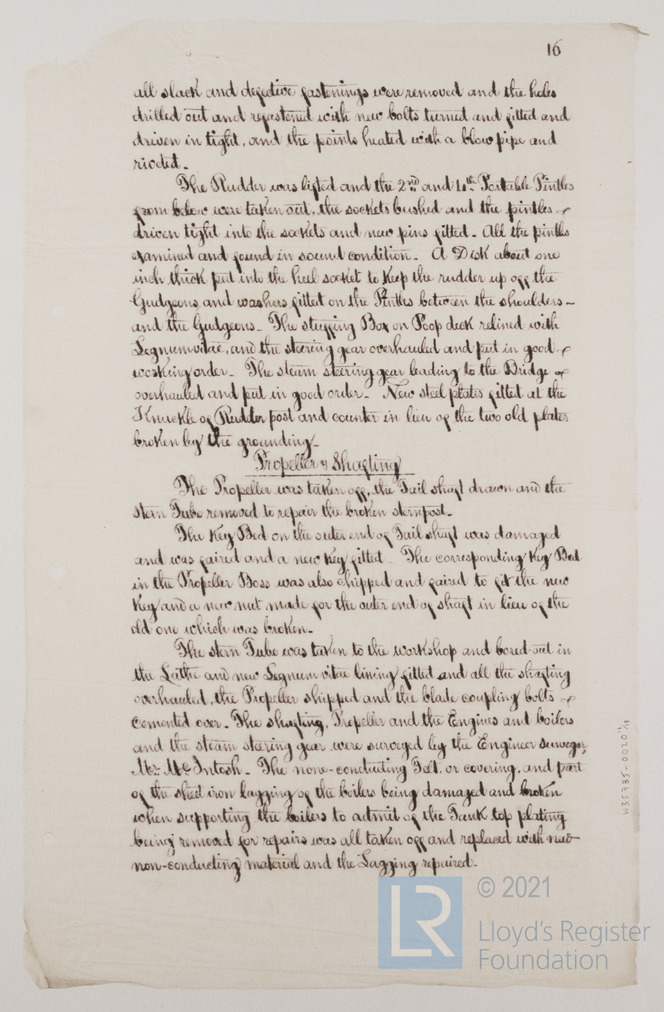 16
all slack and defective fastenings were removed and the holes
drilled out and refastened with new bolts turned and fitted and
driven in tight, and the points heated with a blow pipe and
riveted.
The Rudder was lifted and the 2nd and 4th Portable Pintles
from below were taken out, the sockets bushed and the pintles
driven tight into the sockets and new pins fitted. All the pintles
examined and found in sound condition. A Disk about one
inch thick put into the heel socket to keep the rudder up off the
Gudgeons and washers fitted on the Pintles between the shoulders
and the Gudgeons. The stuffing Box on Poop deck relined with
Legnumvitae, and the steering gear overhauled and put in good
working order. The steam steering gear leading to the Bridge
overhauled and put in good order. New steel plates fitted at the
Knuckle of Rudder post and counter in lieu of the two old plates
broken by the grounding.
Propeller & Shafting
The Propeller was taken off, the Tail shaft drawn and the
stern Tube removed to repair the broken sternpost.
The Key Bed on the outer end of Tail shaft was damaged
and was faired and a new Key fitted. The corresponding Key Bed
in the Propeller Boss was also chipped and faired to fit the new
Key and a new nut made for the outer end of shaft in lieu of the
old one which was broken.
The stern Tube was taken to the workshop and bored out in
the Lathe and new Legnum vitae lining fitted and all the shafting
overhauled, the Propeller shipped and the blade coupling bolts
cemented over. The shafting, Propeller and the Engines and boilers
and the steam steering gear were surveyed by the Engineer Surveyor,
Mr. McIntosh. The none-conducting Felt, or covering, and part
of the sheet iron lagging of the boilers being damaged and broken
when supporting the boilers to admit of the Tank top plating
being removed for repairs was all taken off and replaced with new
non-conducting material and the Lagging repaired.
W35785-0020
LR
© 2021
Lloyd's Register
Foundation